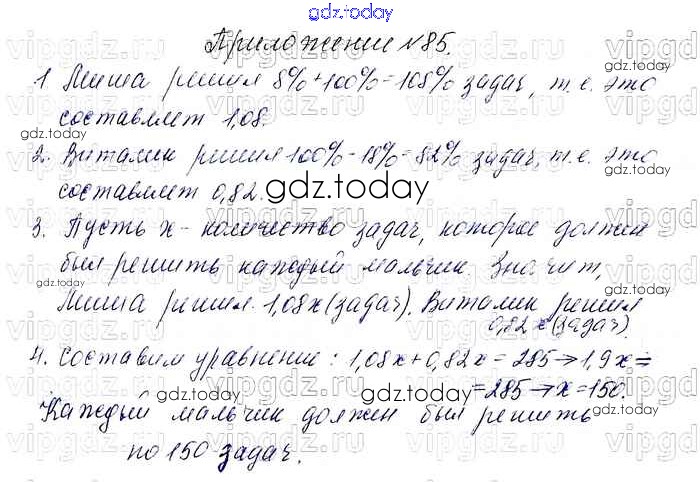 gdz.today
Приложение №85.
1 Миша решил 8%+100%=108% задач, т.е. это
составляет 1,08.
2. Виталик решил 100%-18%=82% задач, т.е. это
составляет 0,82.
3. Пусть x - количество задач, которое должен
был решить каждый мальчик. Значит,
Миша решил 1,08x (задач). Виталик решил
0,82x (задач).
4. Составим уравнение: 1,08x+0,82x=285→1,9x=
=285→x=150.
Каждый мальчик должен был решить
по 150 задач.